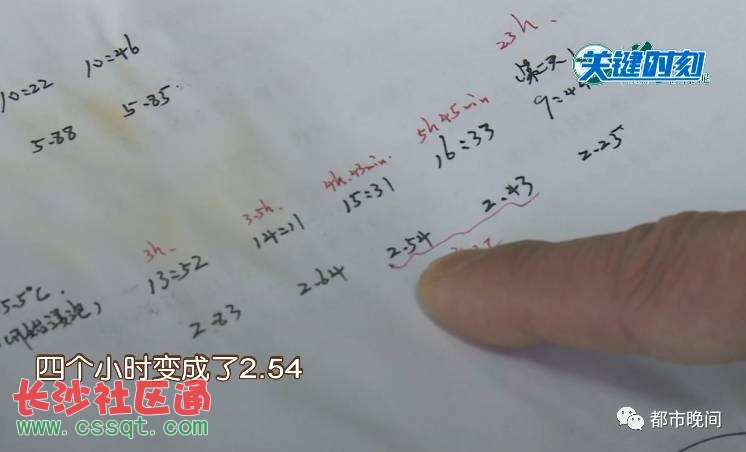 23h.
关键时刻
10=22 10=46
5.88 5.85
5h45min
16=33
2.25
4h.43min.
15=31
2.43
3.5h.
14=11
2.54
3h.
13=52
2.64
2.83
四个小时变成了2.54
长沙社区通
www.cssqt.com
都市晚间